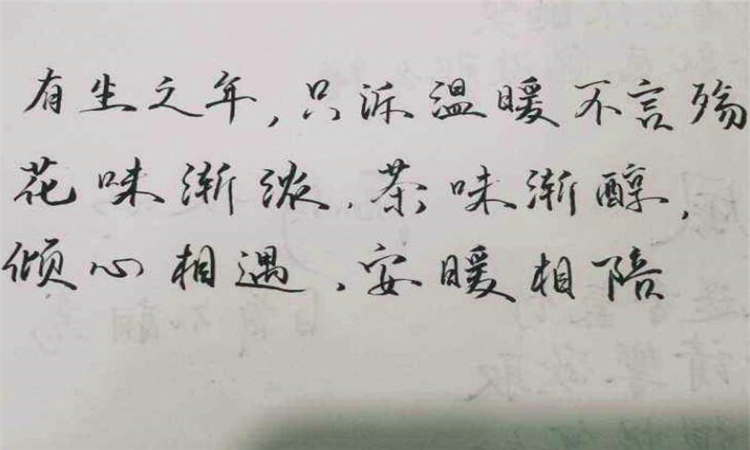 有生之年,只诉温暖不言殇
花味渐浓.茶味渐醇,
倾心相遇.安暖相陪